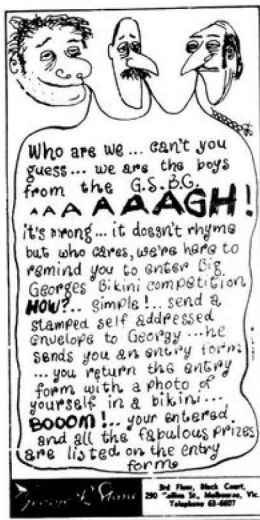 Who are we... can't you
guess... we are the boys
from the G.S.B.G.
AAAAAAGH!
it's wrong... it doesn't rhyme
but who cares, we're here to
remind you to enter Big
Georges Bikini competition
HOW?.. simple!.. send a
stamped self addressed
envelope to Georgy...he
sends you an entry form
... you return the entry
form with a photo of
yourself in a bikini...
BOOOM!.. your entered.
and all the fabulous prizes
are listed on the entry
form
3rd Floor, Block Court,
290 Collins St., Melbourne, Vic.
Telephone 63-6607